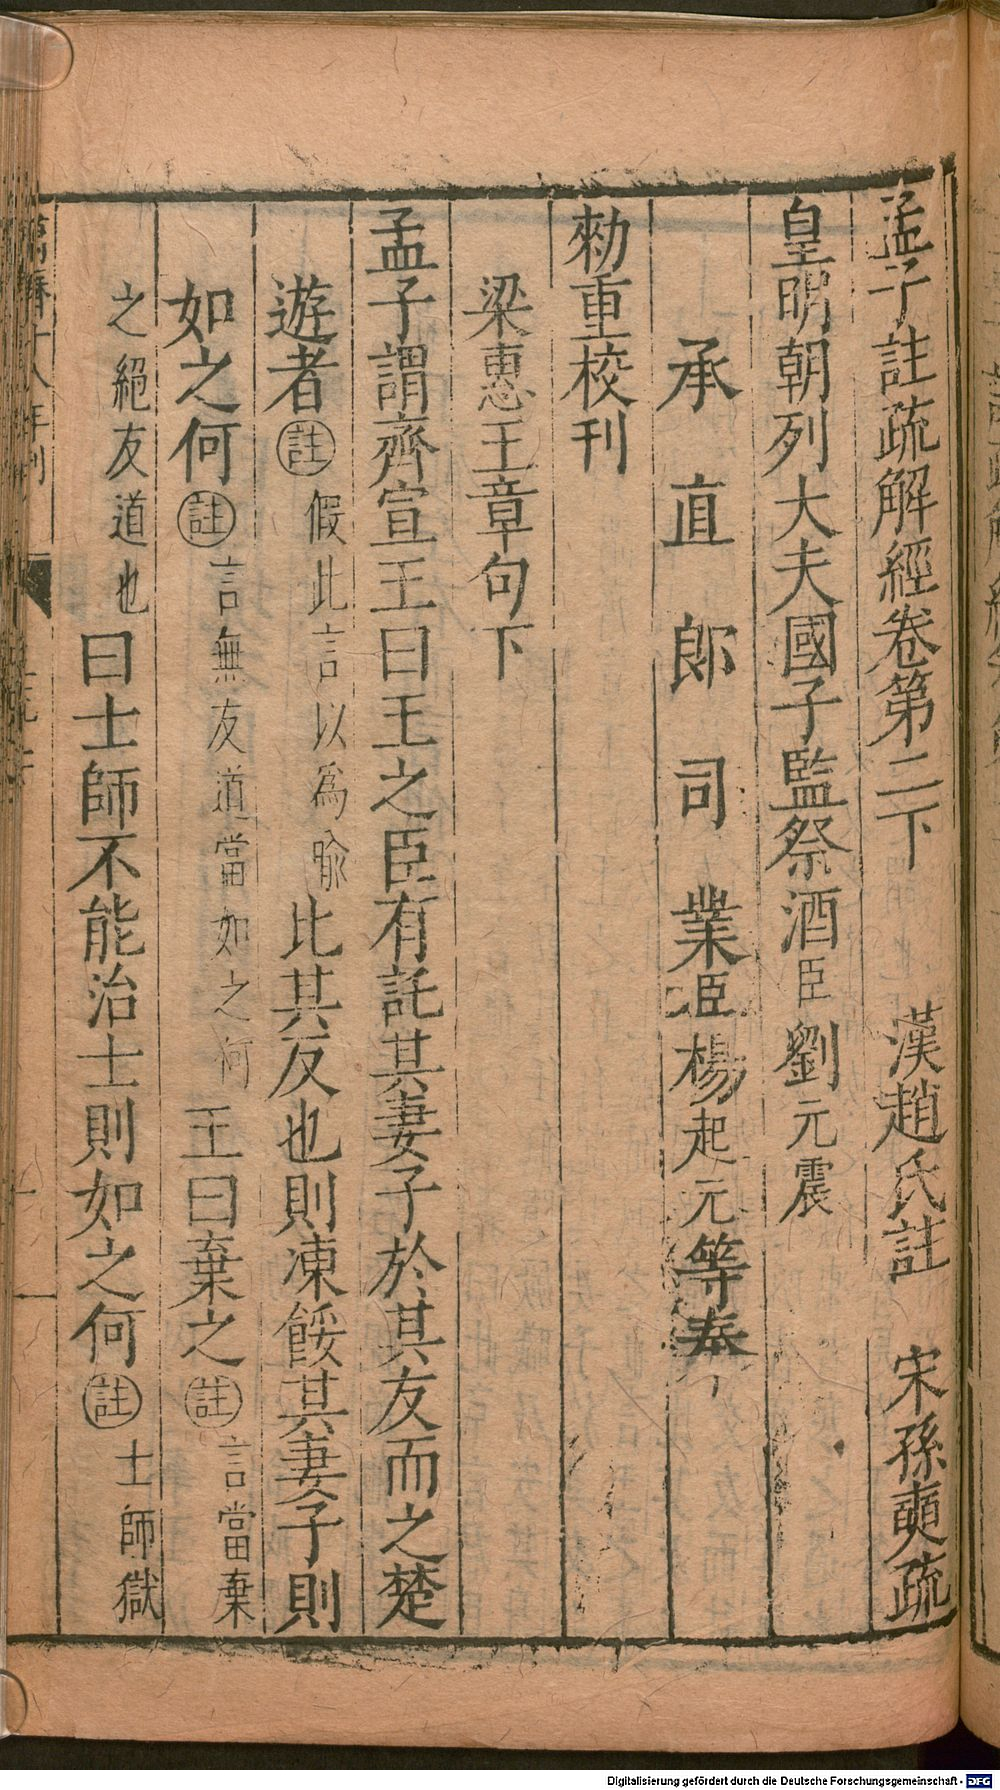 孟子註疏解經卷第二下　漢趙氏註　宋孫奭疏
皇明朝列大夫國子監祭酒臣劉元震
承直郎司業臣楊起元等奉
勑重校刊
梁惠王章句下
孟子謂齊宣王曰王之臣有託其妻子於其友而之楚
遊者註假此言以爲喻比其反也則凍餒其妻子則
如之何註言無友道當如之何王曰棄之註言當棄
之絕友道也曰士師不能治士則如之何註士師獄
Digitalisierung gefördert durch die Deutsche Forschungsgemeinschaft - DFG